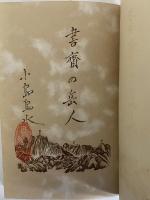 書齋の岳人
小島烏水